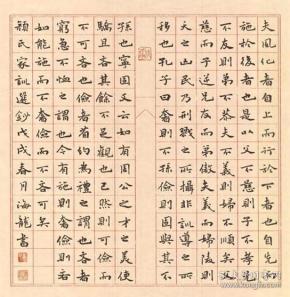 夫風化者自上而行於下者也自先而
施於後者也是以父不慈則子不孝兄
不友則弟不恭夫不義則婦不順矣父
慈而子逆兄友而弟傲夫義而婦陵則
天之凶民乃刑戮之所攝非訓導之所
移也孔子曰奢則不孫儉則固與其不
孫也寧固又云如有周公之才之美使
驕且吝其餘不足觀也已然則可儉而
不可吝也儉者省約為禮之謂也吝者
窮急不恤之謂也今有施則奢儉則吝
如能施而不奢儉而不吝可矣
顏氏家訓選鈔戊戌春月海龍書